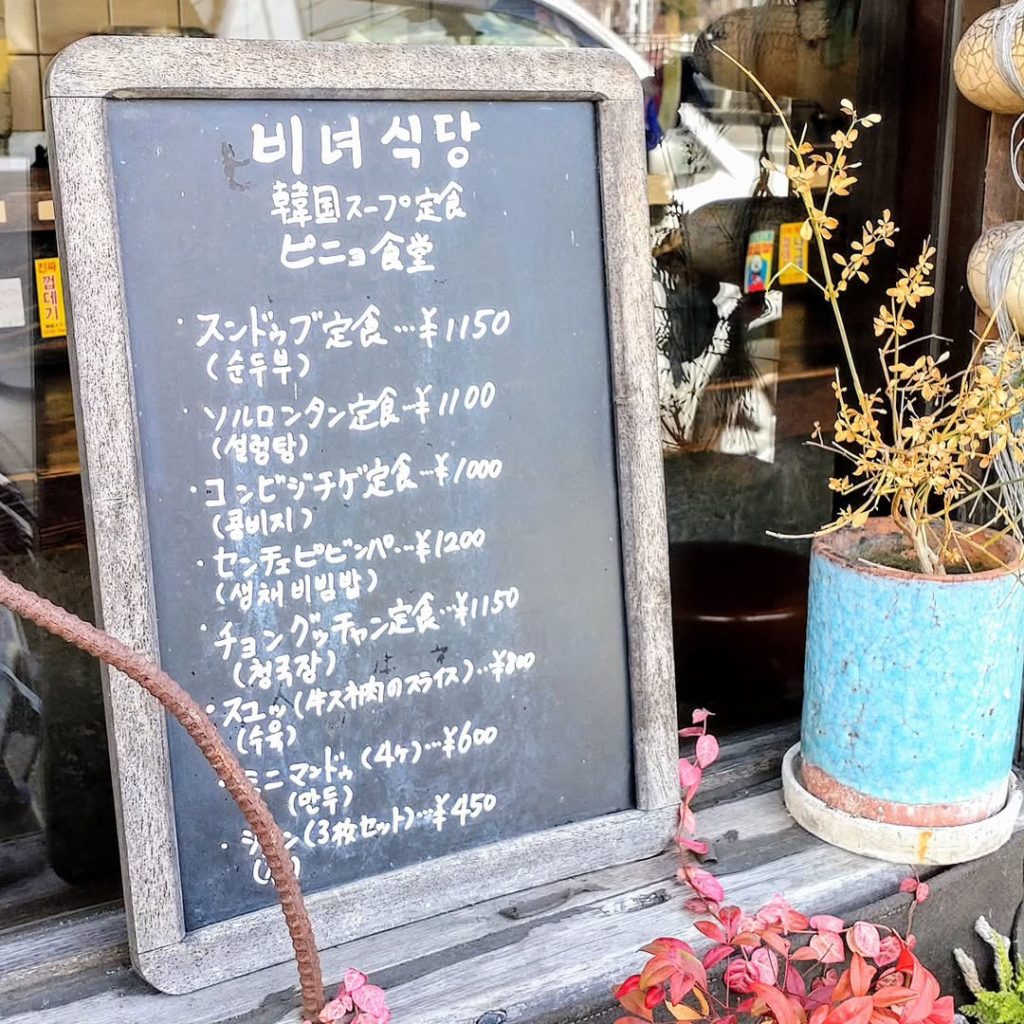 비녀식당
韓国スープ定食
ピニョ食堂
・スンドゥブ定食…¥1150
(순두부)
・ソルロンタン定食…¥1100
(설렁탕)
・コンビジチゲ定食…¥1000
(콩비지)
・センチェピビンパ…¥1200
(생채비빔밥)
・チョングッチャン定食…¥1150
(청국장)
・スユッ(牛スネ肉のスライス)…¥800
(수육)
ミニマンドゥ(4ヶ)…¥600
(만두)
・(3枚セット)…¥450
진짜
껍데기